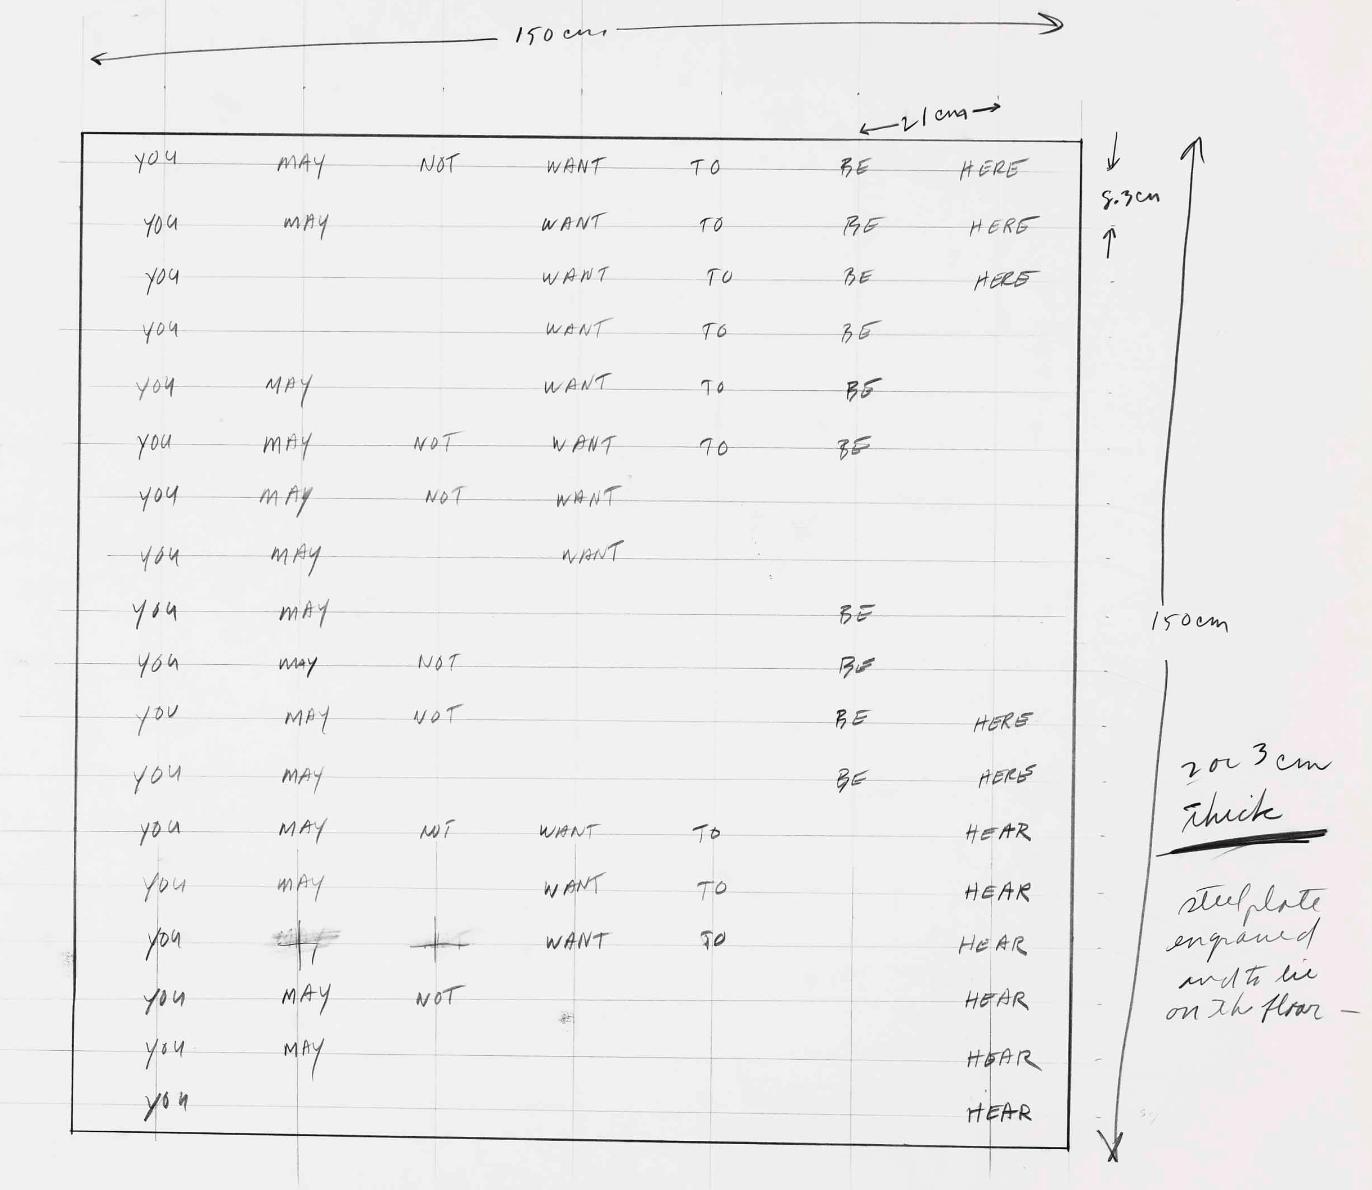 150cm
21cm
YOU MAY NOT WANT TO BE HERE
8.3cm
YOU MAY WANT TO BE HERE
YOU WANT TO BE HERE
YOU WANT TO BE
YOU MAY WANT TO BE
YOU MAY NOT WANT TO BE
YOU MAY NOT WANT
YOU MAY WANT
YOU MAY BE
150cm
YOU MAY NOT BE
YOU MAY NOT BE HERE
YOU MAY BE HERE
YOU MAY NOT WANT TO HEAR
YOU MAY WANT TO HEAR
YOU WANT TO HEAR
YOU MAY NOT HEAR
YOU MAY HEAR
YOU HEAR
2 or 3 cm
thick
steel plate
engraved
and to lie
on the floor –